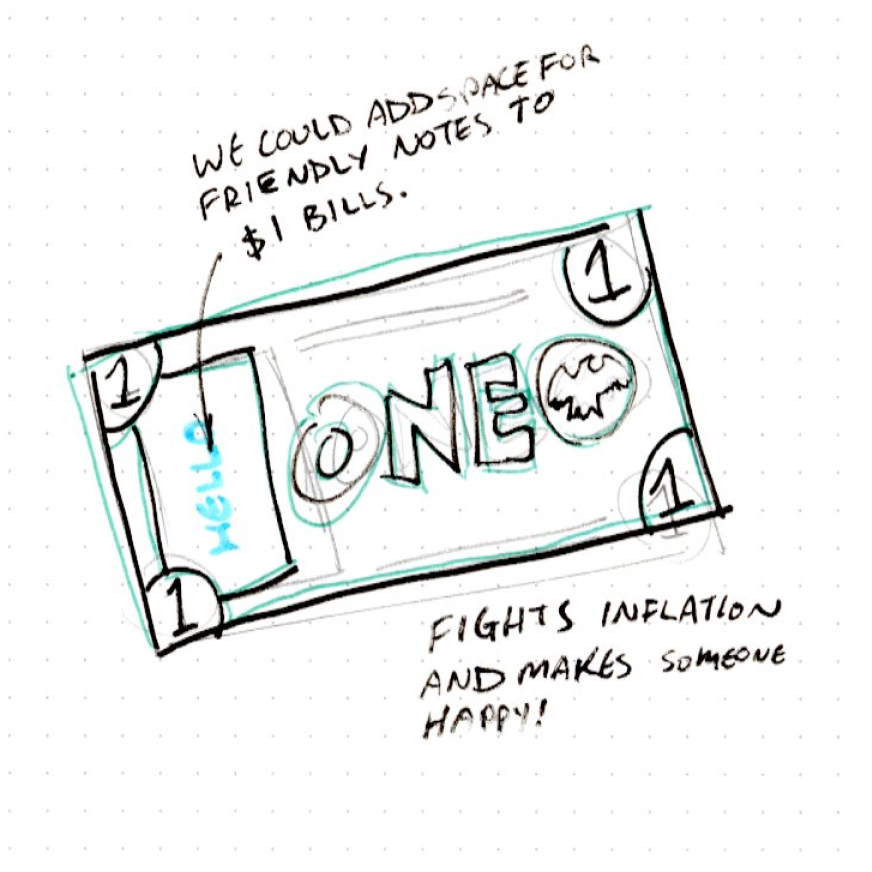 WE COULD ADD SPACE FOR
FRIENDLY NOTES TO
$1 BILLS.
1
1
HELLO
ONE
1
1
FIGHTS INFLATION
AND MAKES SOMEONE
HAPPY!